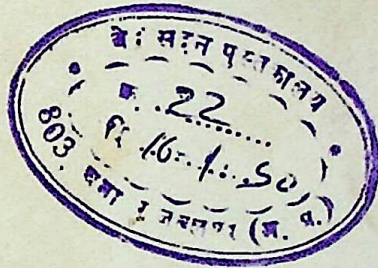 सदन पुस्तकालय
क्र. 22
दि. 16.1.50
803. जबलपुर (म. प्र.)